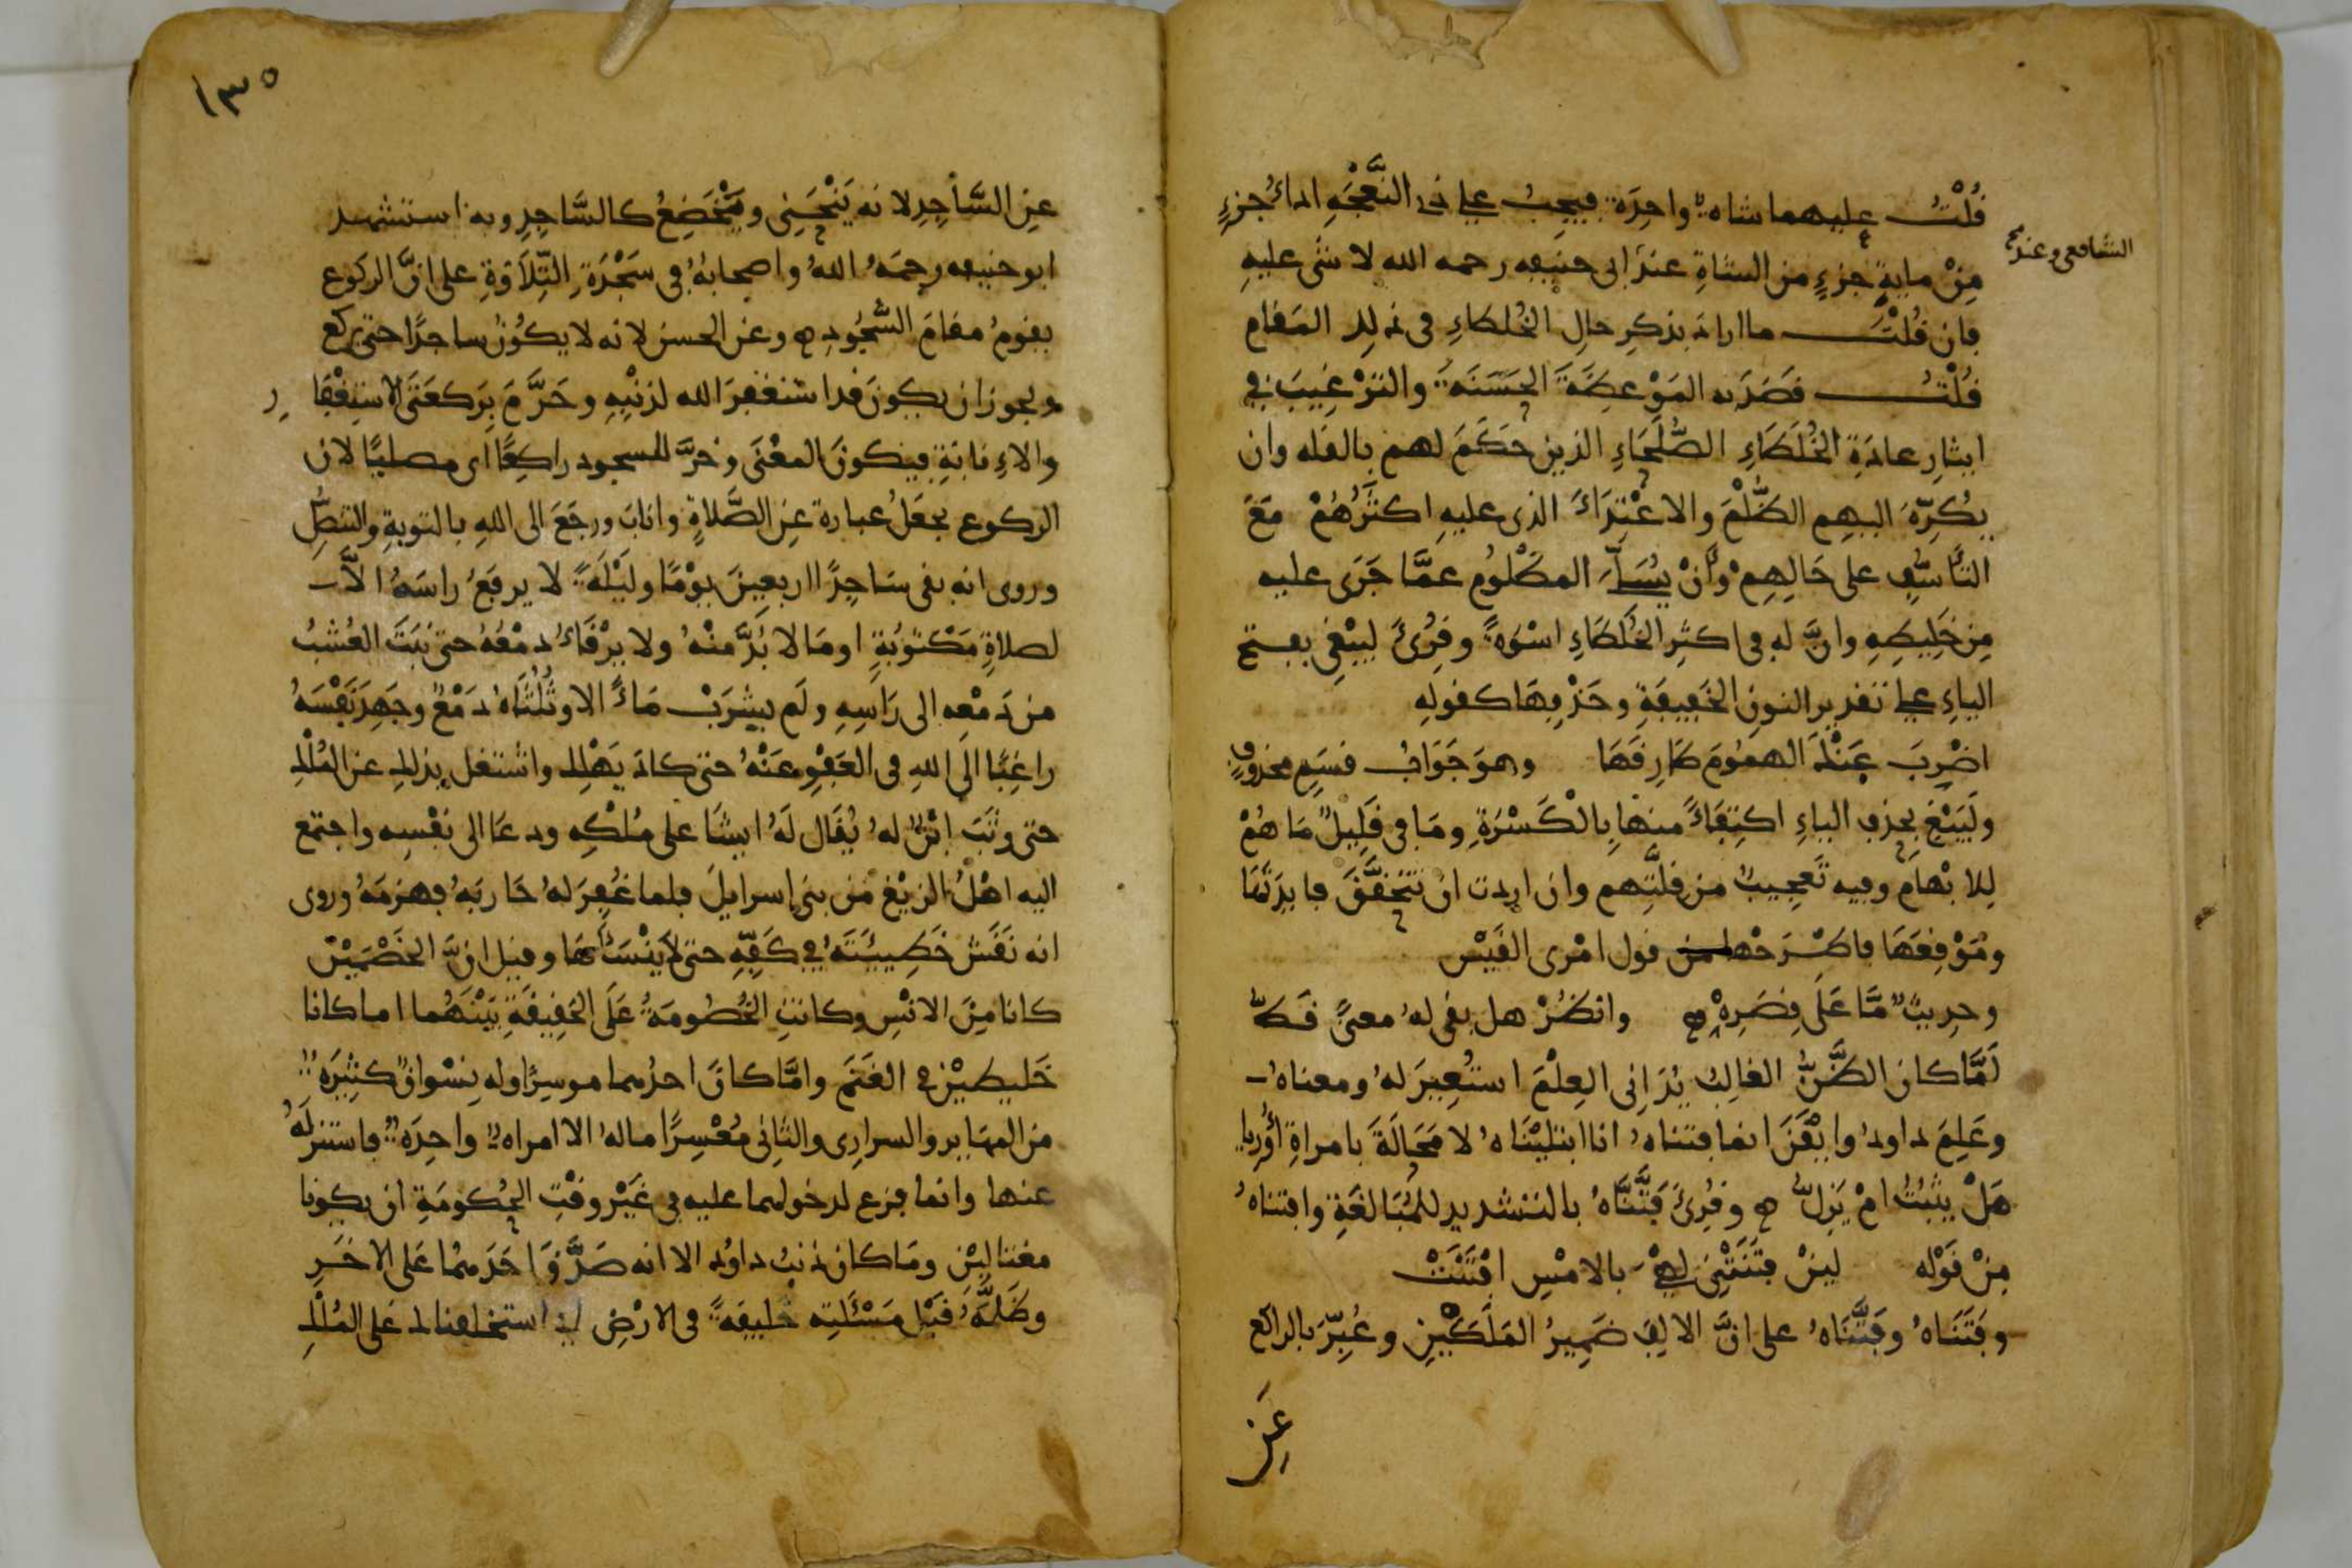 قُلْتُ عليهما شاة واحِدَة فيجِبُ على ذى النَّعْجَةِ اداءُ جزءٍ
الشافعى وعند
مِنْ مايةِ جزءٍ من الشاةِ عندَ ابى حنيفه رحمه الله لا شى عليهِ
فان قُلْتَ ما اراد بذكرِ حالِ الخُلطاءِ فى ذلك المَقام
قُلْتُ قصَدَ به المَوْعِظَةَ الحَسَنَةَ والتَرْغِيبَ فى
ايثارِ عادَةِ الخُلَطَاءِ الصُّلَحَاءِ الذين حَكَمَ لهم بالقله وان
يُكَرِّهَ اليهِم الظُّلْمَ والاعْتِدَاءَ الذى عليهِ اكثَرُهُمْ مَعَ
التأسُّفِ على حَالِهِمْ وأنْ يُسَلِّىَ المظْلُوم عمَّا جَرَى عليه
مِن خَلِيطِهِ وانَّ له فى اكثرِ الخُلَطَاءِ اسْوَةً وقُرِئَ ليَبْغِىَ بفتح
الياءِ على تقدير النونِ الخَفِيفَةِ وحَذْفِهَا كقولِهِ
اضْرِبَ عَنْكَ الهمُومَ طَارِقَهَا وهوَ جَوَابُ قسَمٍ محذوفٍ
ولَيَبْغِ بحذفِ الياءِ اكتِفَاءً منها بِالْكَسْرَةِ ومَا فى قَلِيلٌ مَا هُمْ
لِلابْهَامِ وفيه تَعجِيبٌ من قلَّتِهم وان اردت ان تتحَقَّقَ فايدَتَهَا
ومَوْقِعَهَا فاطْرَحْها من قول امْرى القَيْس
وحديثٌ مَّا عَلَى قِصَرِهْ ه وانظُرْ هل بقى له معنىً قَطُّ
لَمَّا كان الظَّنُّ الغالِبُ يُدَانى العِلْمَ استُعِيرَ لهُ ومعناهُ
وعَلِمَ داودُ وايْقَنَ انما فتناهُ انا ابتليْنَاهُ لا مَحَالَةَ بامراةِ أُورِيا
هَلْ يثبُتُ امْ يَزِلُّ ه وقُرِئَ فَتَّنَّاهُ بالتشديد للمُبَالغَةِ وافتناهُ
مِنْ قَوْله لين فتَنَتْنى لهِىَ بالامْسِ افْتَنَتْ
وفَتَنَاهُ وفَتَّنَاهُ على انَّ الالِفَ ضَمِيرُ المَلَكَيْنِ وعُبِّرَ بالراكع
عَنِ
١٣٥
عنِ السَّاجِدِ لانه يَنْحَنِى ويَخْضَعُ كالسَّاجِدِ وبه استشهد
ابو حنيفه رحِمَهُ اللهُ واصحابهُ فى سَجْدَةِ التِّلاَوةِ على انَّ الركوع
يقومُ مقامَ السُّجُودِ ه وعن الحسن لانه لا يكُونُ ساجدًا حتى يركع
ويجوز ان يكونَ قد استغفرَ الله لذنْبِهِ وحَرَّمَ بِرَكعَتَى الاستِغْفَا ر
والاءِنابَةِ فيكونَ المعْنَى وخرَّ للسجود راكِعًا اى مصليًا لان
الركوع يجعَلُ عبارة عنِ الصَّلاةِ واناب ورجَعَ الى اللهِ بالتوبةِ والتنصُّلِ
وروى انه بقى سَاجدًا اربعِينَ يوْمًا ولَيْلَةً لا يرفَعُ راسَهُ الاَّ
لصلاةٍ مَكْتوُبَةٍ او مَا لا بُدَّ منْهُ ولا يرْقَاءُ دمْعُهُ حتى نبَتَ العُشبُ
من دَمْعِه الى رَاسِهِ ولَم يشرَبْ مَاءً الا وثُلُثَاهُ دَمْعٌ وجَهَدَ نَفْسَهُ
راغِبًا الَى اللهِ فى العَفْوِ عَنْهُ حتى كادَ يَهْلِك واشتغل بذلك عن المُلْكِ
حتى وثَبَ ابْنٌ لهُ يُقَال لَهُ ايشَا على مُلْكِه ودعَا الى نفْسِه واجتمع
اليه اهْلُ الزيْغِ من بنى إسرايلَ فلما غُفِرَ لهُ حَاربَهُ فهزمَهُ وروى
انه نَقَشَ خَطِيئَتَهُ فى كَفِّهِ حتى لاَ ينْسَاهَا وقيل انَّ الخَصْمَيْنِ
كانا مِنَ الانْسِ وكانتِ الخُصُومَةُ عَلَى الحَقِيقَةِ بَيْنَهُما اما كانا
خَليطيْنِ فى الغَنَم وامَّا كانَ احدُهما موسِرًا وله نِسْوانٌ كثِيرَةٌ
من المهَايرِ والسرارِى والثَانِى مُعْسِرًا مالهُ الا امراةٌ واحِدَةٌ فاستنزلَهُ
عنها وانما فزع لدخولهما عليه فى غَيْرِ وقْتِ الحُكومَةِ ان يكونا
مغتالَيْنِ ومَا كان ذنبُ داوُدَ الا انه صَدَّقَ احَدَهُمَا عَلى الاخَرِ
وظَلَّمَهُ قبْلَ مَسْئَلتِه خليفَةً فى الارْضِ اى استخلفناك عَلى المُلْكِ